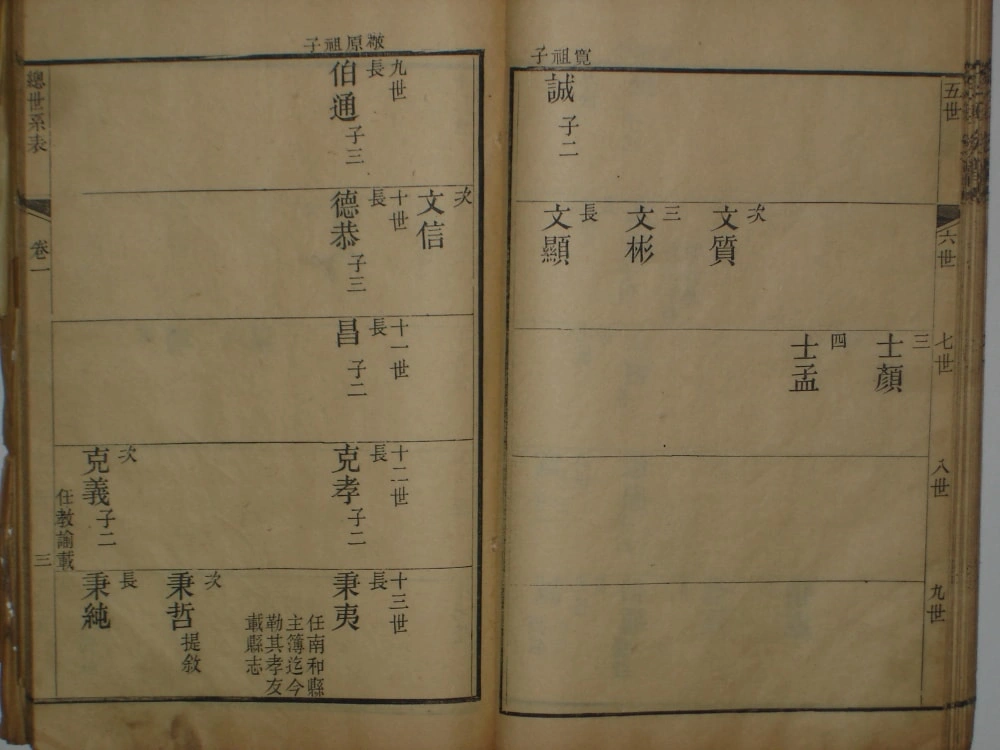 寬祖子
五世
誠 子二
六世
次 文質
三 文彬
長 文顯
七世
三 士顏
四 士孟
八世
九世
原祖子
九世
長 伯通 子三
次 文信
十世
長 德恭 子三
十一世
長 昌 子二
十二世
長 克孝 子二
次 克義 子二
任教諭載
十三世
長 秉夷
任南和縣
主簿迄今
勒其孝友
載縣志
次 秉哲 提敘
長 秉純
總世系表
卷一
三